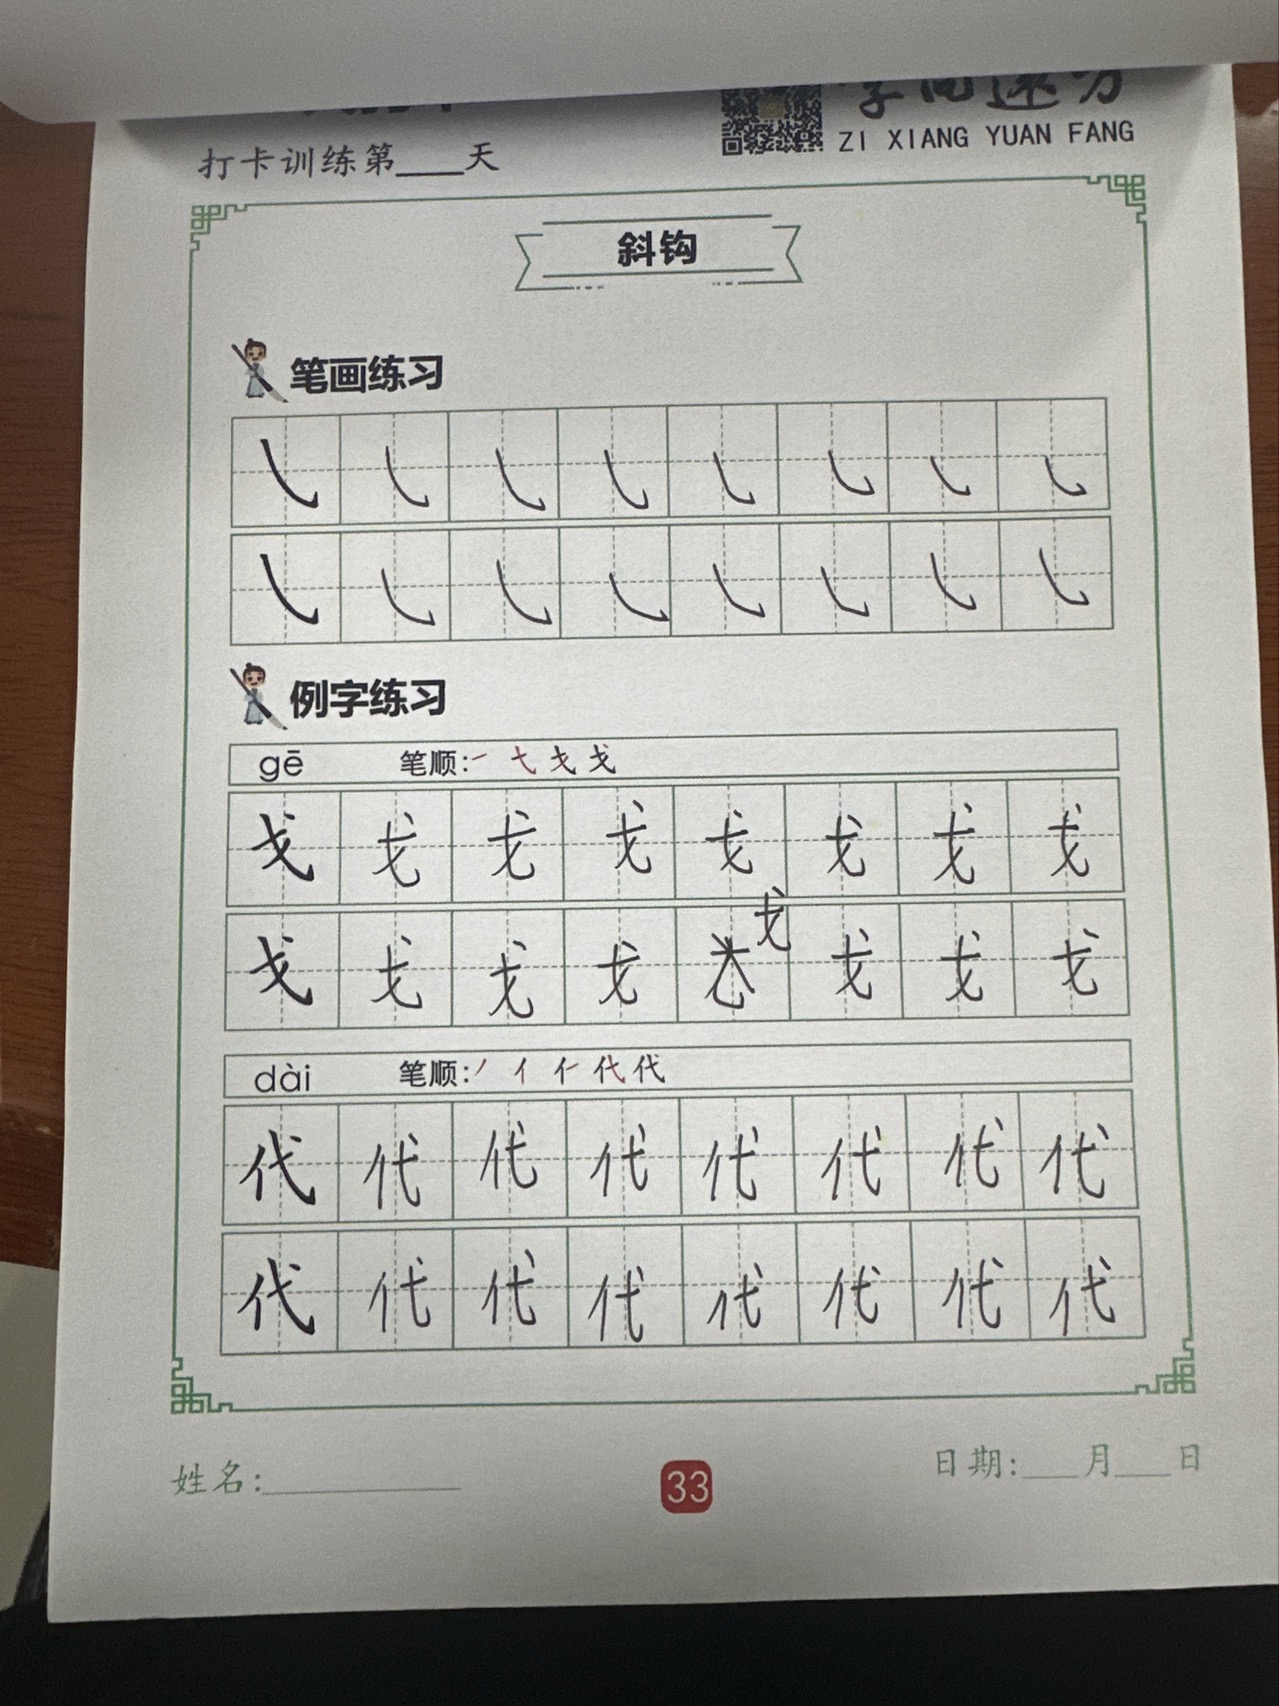 ZI XIANG YUAN FANG
打卡训练第____天
斜钩
笔画练习
例字练习
gē 笔顺:㇀ 弋 戈 戈
戈 戈 戈 戈 戈 戈 戈 戈
戈
戈 戈 戈 戈 戈 戈 戈
dài 笔顺:丿 亻 代 代
代 代 代 代 代 代 代 代
代 代 代 代 代 代 代 代
姓名:__________
33
日期:___月___日